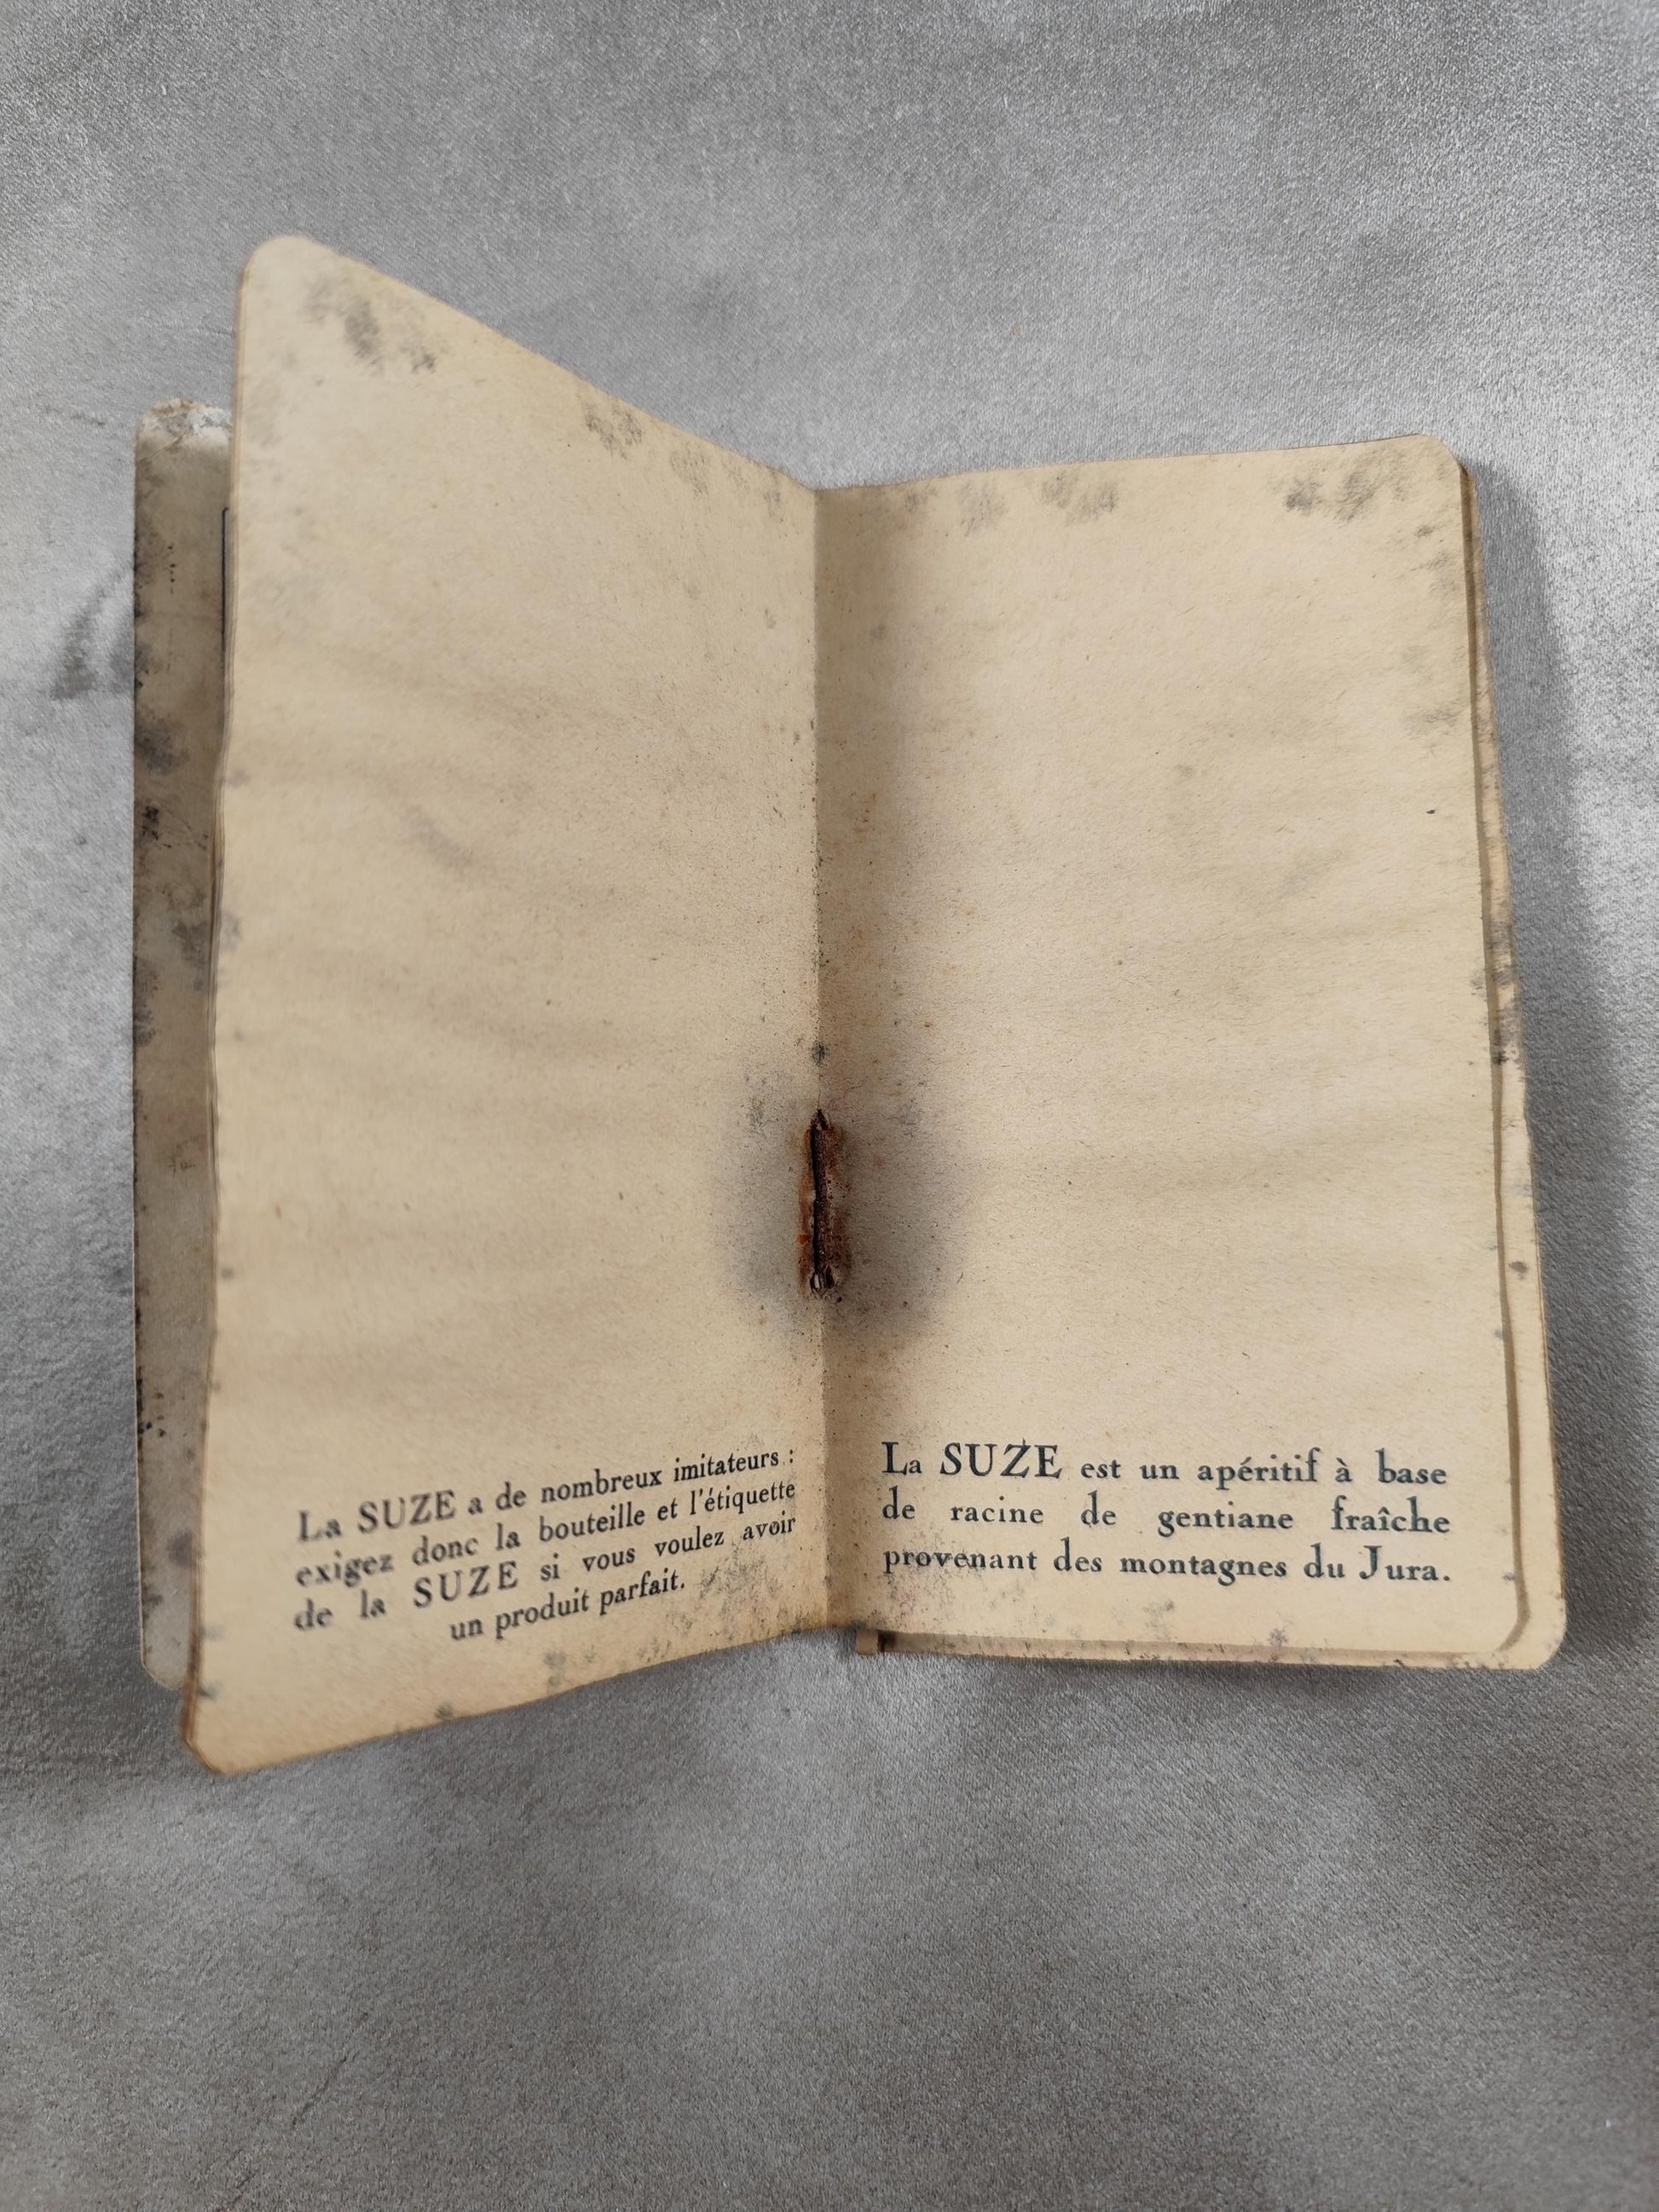 La SUZE a de nombreux imitateurs :
exigez donc la bouteille et l'étiquette
de la SUZE si vous voulez avoir
un produit parfait.
La SUZE est un apéritif à base
de racine de gentiane fraîche
provenant des montagnes du Jura.